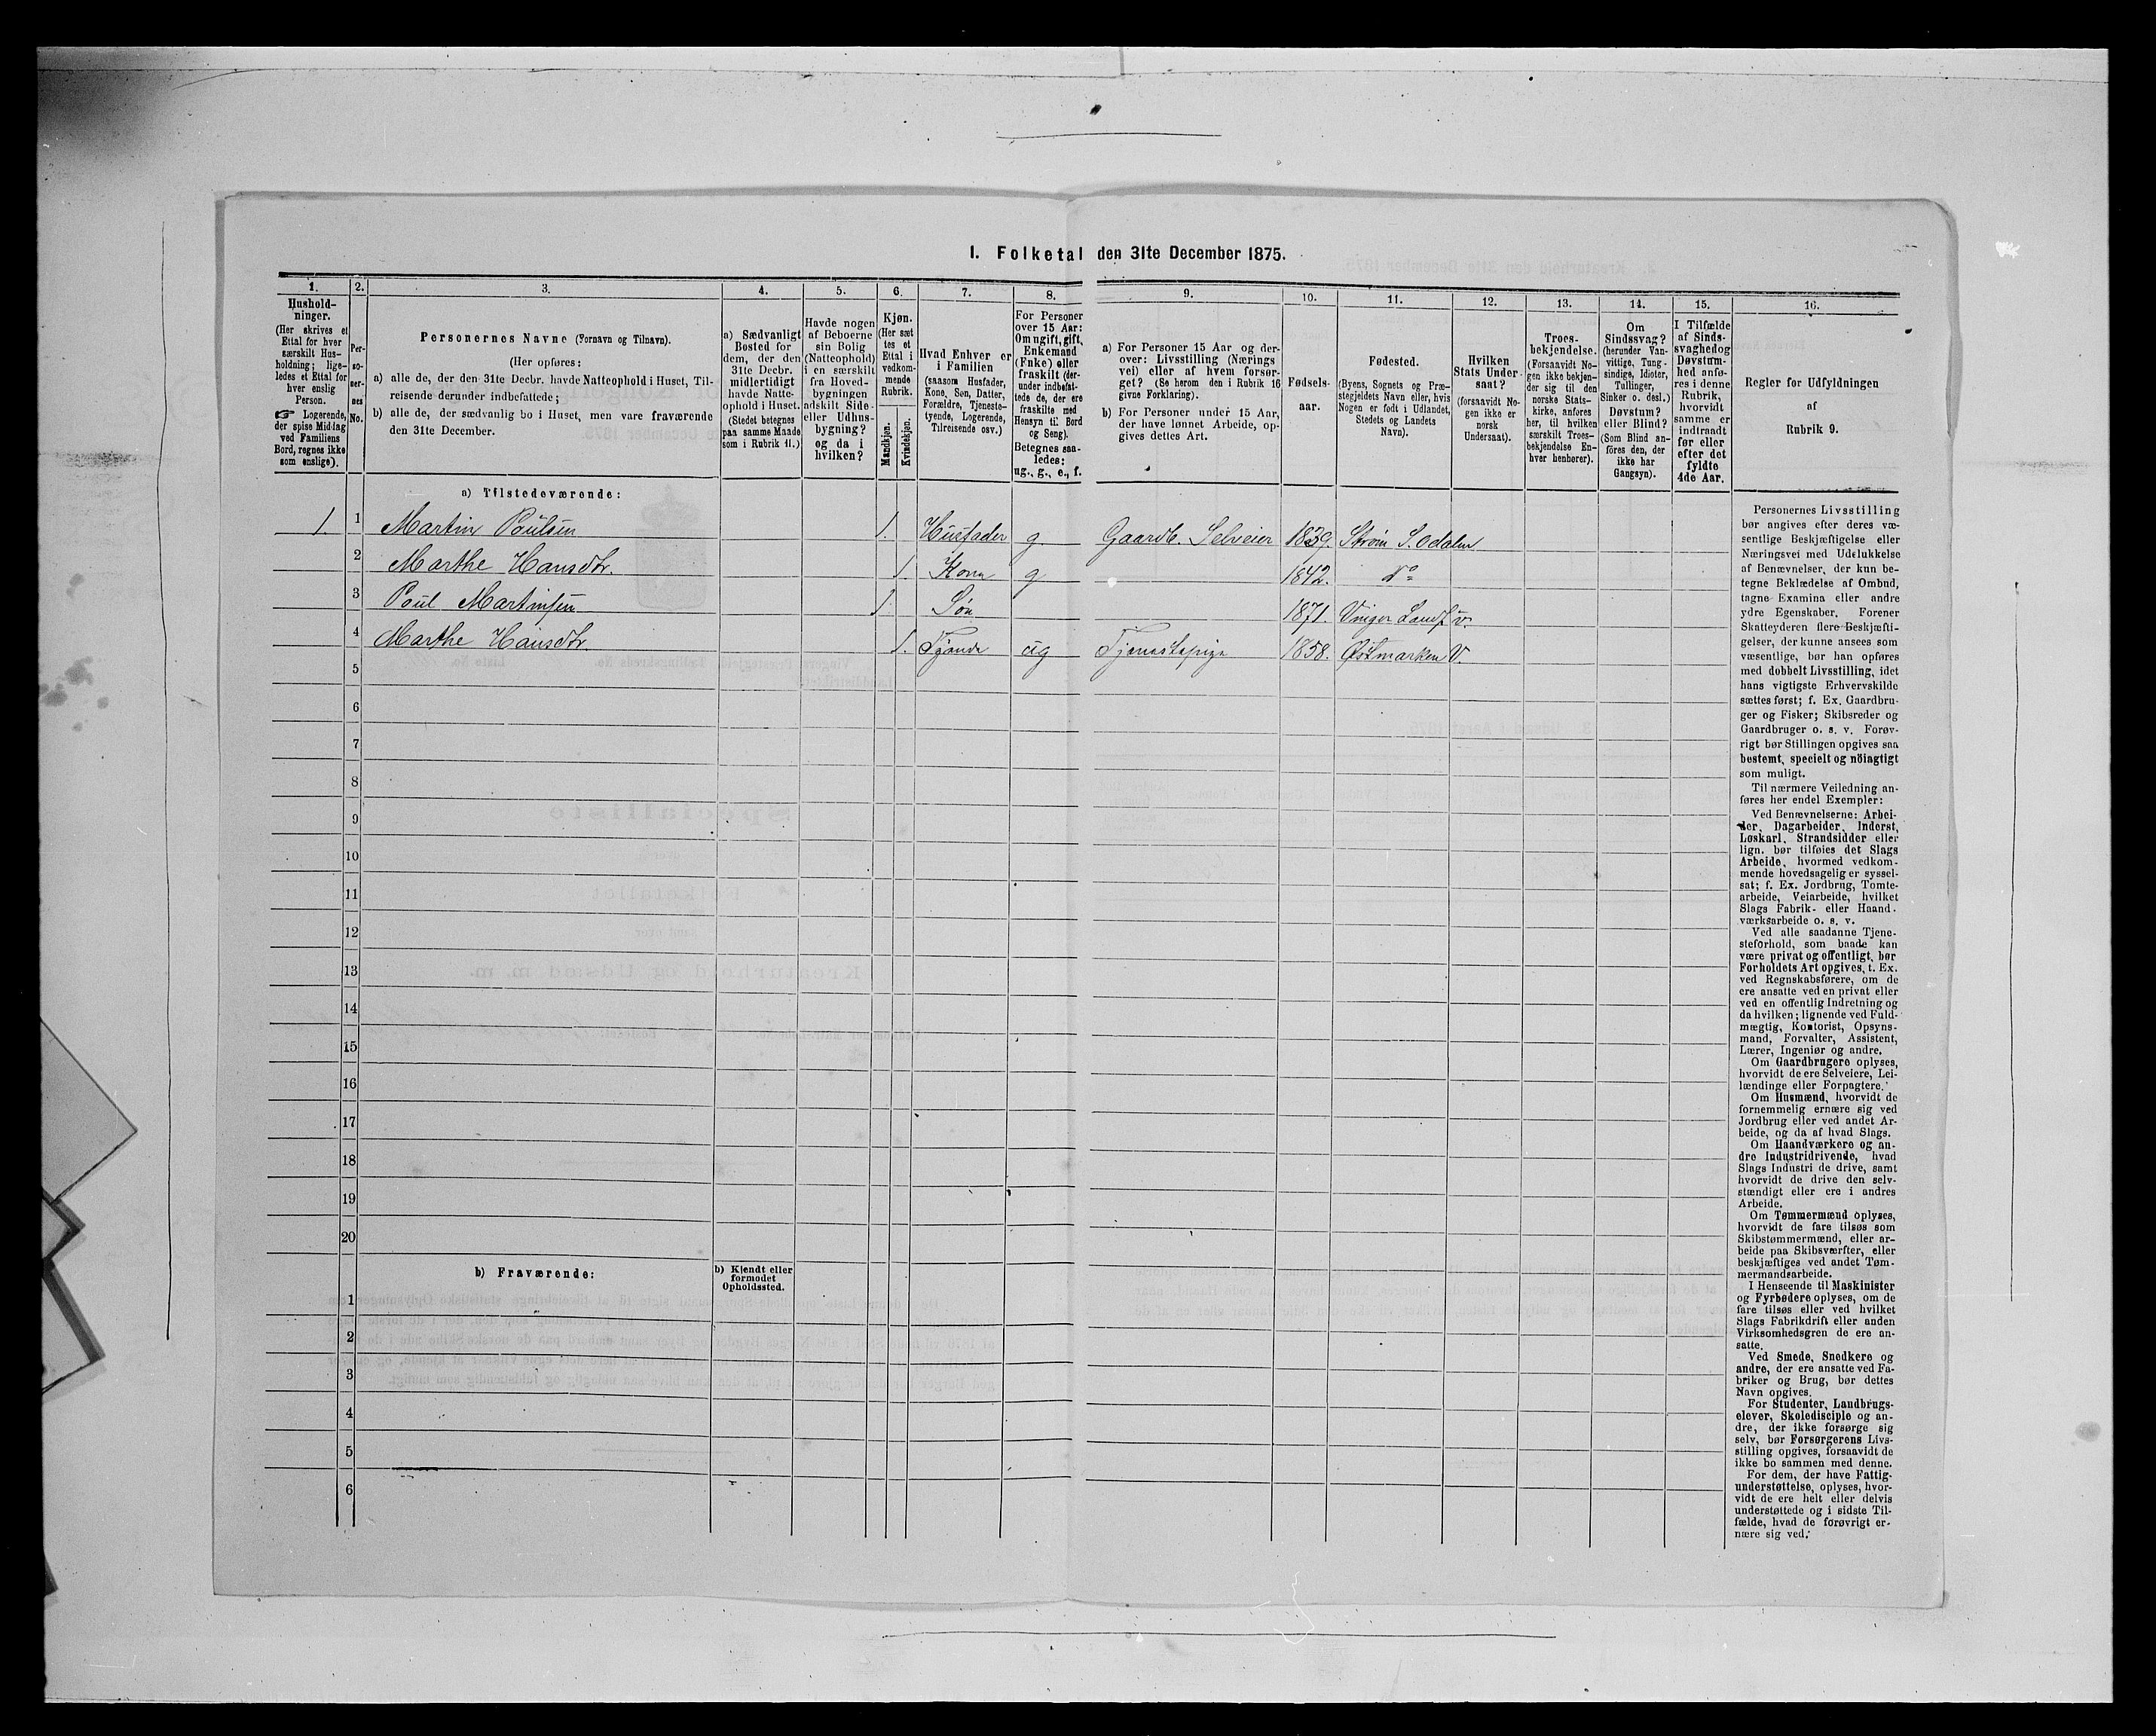 I. Folketal den 31te December 1875.
1.
Hushold-
ninger.
(Her skrives et
Ettal for hver
særskilt Hus-
holdning; lige-
ledes et Ettal for
hver enslig
Person.
☞ Logerende,
der spise Middag
ved Familiens
Bord, regnes ikke
som enslige).
2.
Per-
so-
ner-
nes
No.
3.
Personernes Navne (Fornavn og Tilnavn).
(Her opføres:
a) alle de, der den 31te Decbr. havde Natteophold i Huset, Til-
reisende derunder indbefattede;
b) alle de, der sædvanlig bo i Huset, men vare fraværende
den 31te December.
4.
a) Sædvanligt
Bosted for
dem, der den
31te Decbr.
midlertidigt
havde Natte-
ophold i Huset.
(Stedet betegnes
paa samme Maade
som i Rubrik 11.)
5.
Havde nogen
af Beboerne
sin Bolig
(Natteophold)
i en særskilt
fra Hoved-
bygningen
adskilt Side-
eller Udhus-
bygning?
og da i
hvilken?
6.
Kjøn.
(Her sæt
tes et
Ettal i
vedkom-
mende
Rubrik.
Mandkjøn.
Kvindekjøn.
7.
Hvad Enhver er
i Familien
(saasom Husfader,
Kone, Søn, Datter,
Forældre, Tjeneste-
tyende, Logerende,
Tilreisende osv.)
8.
For Personer
over 15 Aar:
Om ugift, gift,
Enkemand
(Enke) eller
fraskilt (der-
under indbefat-
tede de, der ere
fraskilte med
Hensyn til Bord
og Seng).
Betegnes saa-
ledes:
ug., g., e., f.
9.
a) For Personer 15 Aar og der-
over: Livsstilling (Nærings
vei) eller af hvem forsør-
get? (Se herom den i Rubrik 16
givne Forklaring).
b) For Personer under 15 Aar,
der have lønnet Arbeide, op-
gives dettes Art.
10.
Fødsels-
aar.
11.
Fødested.
(Byens, Sognets og Præ-
stegjeldets Navn eller, hvis
Nogen er født i Udlandet,
Stedets og Landets
Navn).
12.
Hvilken
Stats Under-
saat?
(forsaavidt No-
gen ikke er
norsk
Undersaat).
13.
Troes-
bekjendelse.
(Forsaavidt No-
gen ikke bekjen-
der sig til den
norske Stats-
kirke, anføres
her, til hvilken
særskilt Troes-
bekjendelse En-
hver henhører).
14.
Om
Sindssvag?
(herunder Van-
vittige, Tung-
sindige, Idioter,
Tullinger,
Sinker o. desl.)
Døvstum?
eller Blind?
(Som Blind an-
föres den, der
ikke har
Gangsyn).
15.
I Tilfælde
af Sinds-
svaghed og
Døvstum-
hed anfø-
res i denne
Rubrik,
hvorvidt
samme er
indtraadt
før eller
efter det
fyldte
4de Aar.
16.
Regler for Udfyldningen
af
Rubrik 9.
a) Tilstedeværende:
1. 1 Martin Poulsen 1. Husfader g. Gaardb. Selveier 1839. Strøm S. Odalen
2 Marthe Hansdtr. 1. Kone g 1842. do
3 Poul Martinsen 1. Søn 1871. Vinger Lands.
4 Marthe Hansdtr. 1. Tjende ug Tjenestepige 1858. Østmarken V.
5
6
7
8
9
10
11
12
13
14
15
16
17
18
19
20
b) Fraværende:
b) Kjendt eller
formodet
Opholdssted.
1
2
3
4
5
6
Personernes Livsstilling
bør angives efter deres væ-
sentlige Beskjæftigelse eller
Næringsvei med Udelukkelse
af Benævnelser, der kun be-
tegne Beklædelse af Ombud,
tagne Examina eller andre
ydre Egenskaber. Forener
Skatteyderen flere Beskjæfti-
gelser, der kunne ansees som
væsentlige, bør han opføres
med dobbelt Livsstilling, idet
hans vigtigste Erhvervskilde
sættes først; f. Ex. Gaardbru-
ger og Fisker; Skibsreder og
Gaardbruger o. s. v. Forøv-
rigt bør Stillingen opgives saa
bestemt, specielt og nöiagtigt
som muligt.
Til nærmere Veiledning an-
føres her endel Exempler:
Ved Benævnelserne: Arbei-
der, Dagarbeider, Inderst,
Løskarl, Strandsidder eller
lign. bør tilføies det Slags
Arbeide, hvormed vedkom-
mende hovedsagelig er syssel-
sat; f. Ex. Jordbrug, Tomte-
arbeide, Veiarbeide, hvilket
Slags Fabrik- eller Haand-
værksarbeide o. s. v.
Ved alle saadanne Tjene-
steforhold, som baade kan
være privat og offentligt, bør
Forholdets Art opgives, t. Ex.
ved Regnskabsførere, om de
ere ansatte ved en privat eller
ved en offentlig Indretning og
da hvilken; lignende ved Fuld-
mægtig, Kontorist, Opsyns-
mand, Forvalter, Assistent,
Lærer, Ingeniør og andre.
Om Gaardbrugere oplyses,
hvorvidt de ere Selveiere, Lei-
lændinge eller Forpagtere.
Om Husmænd, hvorvidt de
fornemmelig ernære sig ved
Jordbrug eller ved andet Ar-
beide, og da af hvad Slags.
Om Haandværkere og an-
dre Industridrivende, hvad
Slags Industri de drive, samt
hvorvidt de drive den selv-
stændigt eller ere i andres
Arbeide.
Om Tømmermænd oplyses,
hvorvidt de fare tilsøs som
Skibstømmermænd, eller ar-
beide paa Skibsværfter, eller
beskjæftiges ved andet Tøm-
mermandsarbeide.
I Henseende til Maskinister
og Fyrbødere oplyses, om de
fare tilsøs eller ved hvilket
Slags Fabrikdrift eller anden
Virksomhedsgren de ere an-
satte.
Ved Smede, Snedkere og
andre, der ere ansatte ved Fa-
briker og Brug, bør dettes
Navn opgives.
For Studenter, Landbrugs-
elever, Skoledisciple og an-
dre, der ikke forsørge sig
selv, bør Forsørgerens Livs-
stilling opgives, forsaavidt de
ikke bo sammen med denne.
For dem, der have Fattig-
understøttelse, oplyses, hvor-
vidt de ere helt eller delvis
understøttede og i sidste Til-
fælde, hvad de forøvrigt er-
nære sig ved.